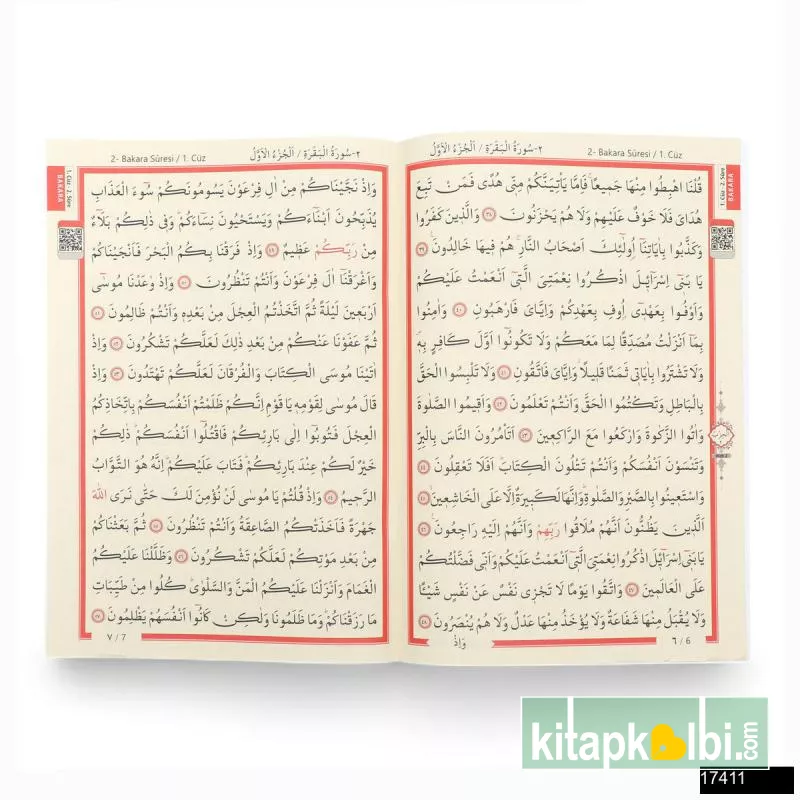 ٢- سُورَةُ الْبَقَرَةِ / اَلْجُزْءُ الْاَوَّلُ 2- Bakara Sûresi / 1. Cüz
1. Cüz - 2. Sûre
BAKARA
قُلْنَا اهْبِطُوا مِنْهَا جَمِيعًاۚ فَاِمَّا يَأْتِيَنَّكُمْ مِنّ۪ى هُدًى فَمَنْ تَبِعَ
هُدَاىَ فَلَا خَوْفٌ عَلَيْهِمْ وَلَا هُمْ يَحْزَنُونَ ﴿٣٨﴾ وَالَّذ۪ينَ كَفَرُوا
وَكَذَّبُوا بِاٰيَاتِنَٓا اُو۬لٰٓئِكَ اَصْحَابُ النَّارِۚ هُمْ ف۪يهَا خَالِدُونَ ﴿٣٩﴾
يَا بَن۪ٓى اِسْرَٓائ۪لَ اذْكُرُوا نِعْمَتِىَ الَّت۪ٓى اَنْعَمْتُ عَلَيْكُمْ
وَاَوْفُوا بِعَهْد۪ٓى اُو۫فِ بِعَهْدِكُمْ وَاِيَّاىَ فَارْهَبُونِ ﴿٤٠﴾ وَاٰمِنُوا
بِمَٓا اَنْزَلْتُ مُصَدِّقًا لِمَا مَعَكُمْ وَلَا تَكُونُٓوا اَوَّلَ كَافِرٍ بِه۪ۖ
وَلَا تَشْتَرُوا بِاٰيَات۪ى ثَمَنًا قَل۪يلًاۘ وَاِيَّاىَ فَاتَّقُونِ ﴿٤١﴾ وَلَا تَلْبِسُوا الْحَقَّ
بِالْبَاطِلِ وَتَكْتُمُوا الْحَقَّ وَاَنْتُمْ تَعْلَمُونَ ﴿٤٢﴾ وَاَق۪يمُوا الصَّلٰوةَ
وَاٰتُوا الزَّكٰوةَ وَارْكَعُوا مَعَ الرَّاكِع۪ينَ ﴿٤٣﴾ اَتَأْمُرُونَ النَّاسَ بِالْبِرِّ
وَتَنْسَوْنَ اَنْفُسَكُمْ وَاَنْتُمْ تَتْلُونَ الْكِتَابَۜ اَفَلَا تَعْقِلُونَ ﴿٤٤﴾
وَاسْتَع۪ينُوا بِالصَّبْرِ وَالصَّلٰوةِۜ وَاِنَّهَا لَكَب۪يرَةٌ اِلَّا عَلَى الْخَاشِع۪ينَۙ ﴿٤٥﴾
اَلَّذ۪ينَ يَظُنُّونَ اَنَّهُمْ مُلَاقُوا رَبِّهِمْ وَاَنَّهُمْ اِلَيْهِ رَاجِعُونَ ﴿٤٦﴾
يَا بَن۪ٓى اِسْرَٓائ۪لَ اذْكُرُوا نِعْمَتِىَ الَّت۪ٓى اَنْعَمْتُ عَلَيْكُمْ وَاَنّ۪ى فَضَّلْتُكُمْ
عَلَى الْعَالَم۪ينَ ﴿٤٧﴾ وَاتَّقُوا يَوْمًا لَا تَجْز۪ى نَفْسٌ عَنْ نَفْسٍ شَيْـًٔا
وَلَا يُقْبَلُ مِنْهَا شَفَاعَةٌ وَلَا يُؤْخَذُ مِنْهَا عَدْلٌ وَلَا هُمْ يُنْصَرُونَ ﴿٤٨﴾
٦ / 6
وَاِذْ
2- Bakara Sûresi / 1. Cüz ٢- سُورَةُ الْبَقَرَةِ / اَلْجُزْءُ الْاَوَّلُ
1. Cüz - 2. Sûre
BAKARA
وَاِذْ نَجَّيْنَاكُمْ مِنْ اٰلِ فِرْعَوْنَ يَسُومُونَكُمْ سُٓوءَ الْعَذَابِ
يُذَبِّحُونَ اَبْنَٓاءَكُمْ وَيَسْتَحْيُونَ نِسَٓاءَكُمْۜ وَف۪ى ذٰلِكُمْ بَلَٓاءٌ
مِنْ رَبِّكُمْ عَظ۪يمٌ ﴿٤٩﴾ وَاِذْ فَرَقْنَا بِكُمُ الْبَحْرَ فَاَنْجَيْنَاكُمْ
وَاَغْرَقْنَٓا اٰلَ فِرْعَوْنَ وَاَنْتُمْ تَنْظُرُونَ ﴿٥٠﴾ وَاِذْ وٰعَدْنَا مُوسٰٓى
اَرْبَع۪ينَ لَيْلَةً ثُمَّ اتَّخَذْتُمُ الْعِجْلَ مِنْ بَعْدِه۪ وَاَنْتُمْ ظَالِمُونَ ﴿٥١﴾
ثُمَّ عَفَوْنَا عَنْكُمْ مِنْ بَعْدِ ذٰلِكَ لَعَلَّكُمْ تَشْكُرُونَ ﴿٥٢﴾ وَاِذْ
اٰتَيْنَا مُوسَى الْكِتَابَ وَالْفُرْقَانَ لَعَلَّكُمْ تَهْتَدُونَ ﴿٥٣﴾ وَاِذْ
قَالَ مُوسٰى لِقَوْمِه۪ يَا قَوْمِ اِنَّكُمْ ظَلَمْتُمْ اَنْفُسَكُمْ بِاتِّخَاذِكُمُ
الْعِجْلَ فَتُوبُٓوا اِلٰى بَارِئِكُمْ فَاقْتُلُٓوا اَنْفُسَكُمْۜ ذٰلِكُمْ
خَيْرٌ لَكُمْ عِنْدَ بَارِئِكُمْۜ فَتَابَ عَلَيْكُمْۜ اِنَّهُ هُوَ التَّوَّابُ
الرَّح۪يمُ ﴿٥٤﴾ وَاِذْ قُلْتُمْ يَا مُوسٰى لَنْ نُؤْمِنَ لَكَ حَتّٰى نَرَى اللّٰهَ
جَهْرَةً فَاَخَذَتْكُمُ الصَّاعِقَةُ وَاَنْتُمْ تَنْظُرُونَ ﴿٥٥﴾ ثُمَّ بَعَثْنَاكُمْ
مِنْ بَعْدِ مَوْتِكُمْ لَعَلَّكُمْ تَشْكُرُونَ ﴿٥٦﴾ وَظَلَّلْنَا عَلَيْكُمُ
الْغَمَامَ وَاَنْزَلْنَا عَلَيْكُمُ الْمَنَّ وَالسَّلْوٰىۜ كُلُوا مِنْ طَيِّبَاتِ
مَا رَزَقْنَاكُمْۜ وَمَا ظَلَمُونَا وَلٰكِنْ كَانُٓوا اَنْفُسَهُمْ يَظْلِمُونَ ﴿٥٧﴾
٧ / 7
kitapkalbi.com
17411